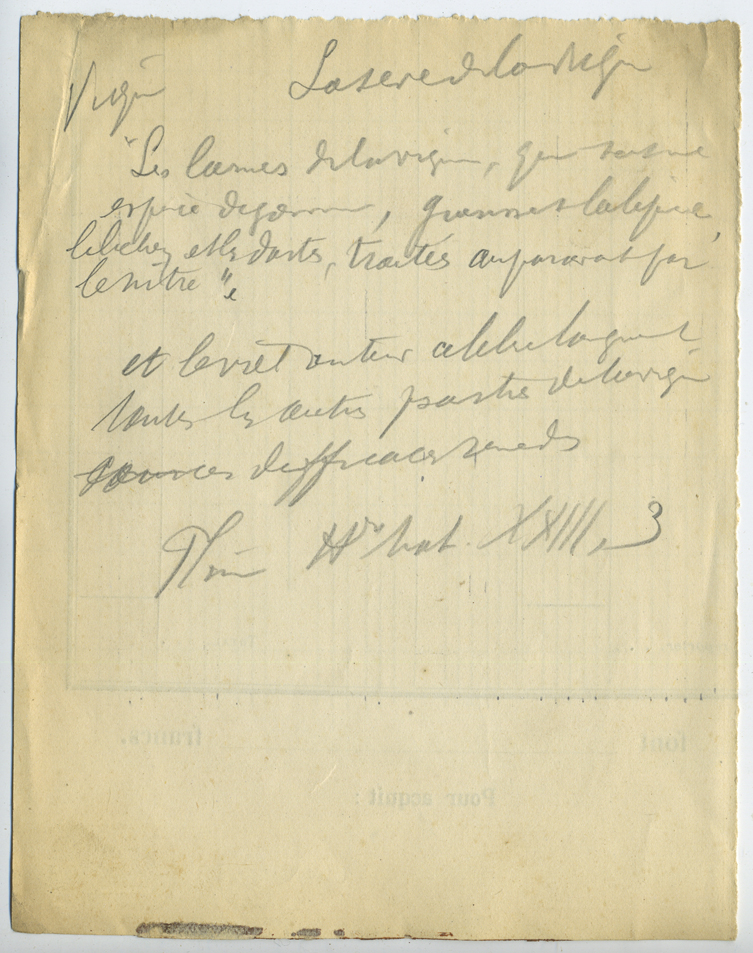 Vigne La sève de la vigne
"Les larmes de la vigne, qui sont une
espèce de gomme, guérissent la lèpre,
le lichen et les dartres, traités auparavant par
le nitre".
et le vieil auteur
toutes les autres parties de la vigne
d'efficaces remèdes
Plin Hre nat. XXIII, 3
francs.
font
Pour acquit